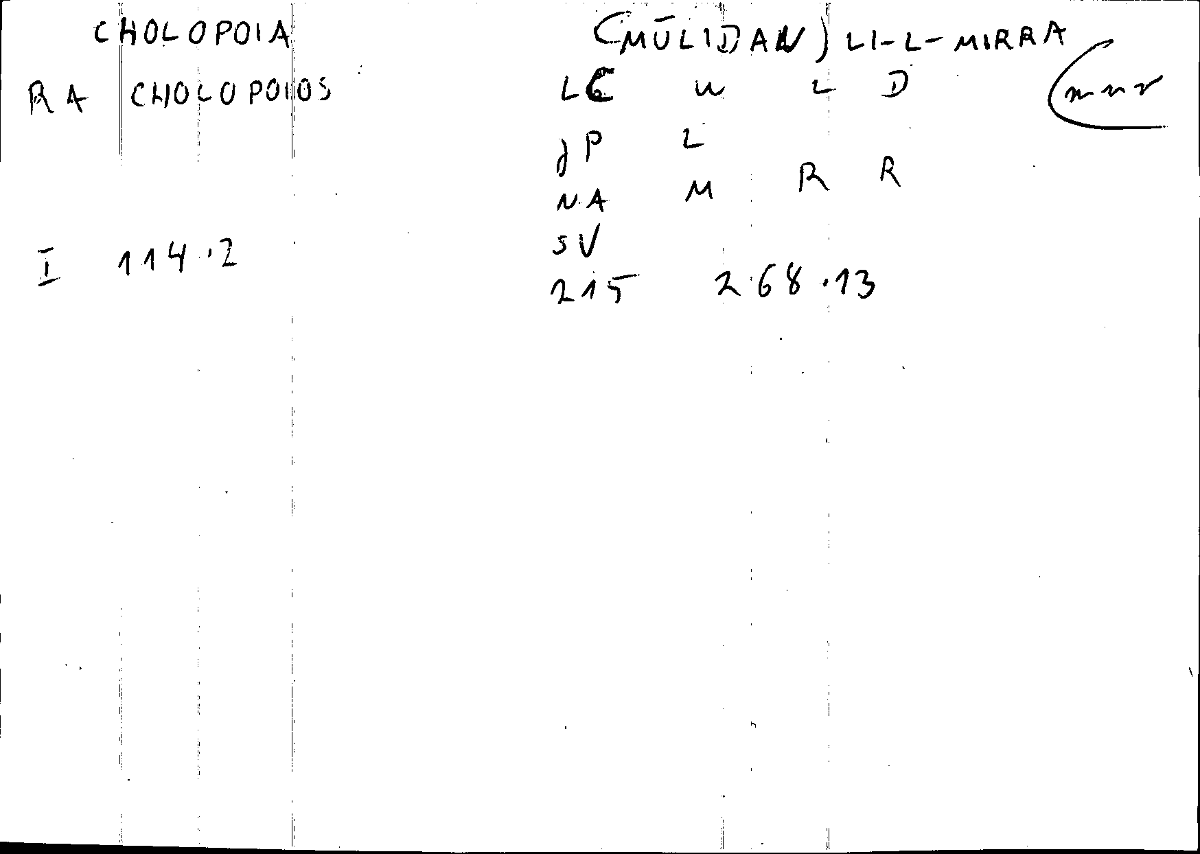 CHOLOPOIA (MŪLIDAN) LI-L-MIRRA
RA CHOLOPOIOS LC W L D
JP L
NA M R R
SV
I 114.2 215 268.13